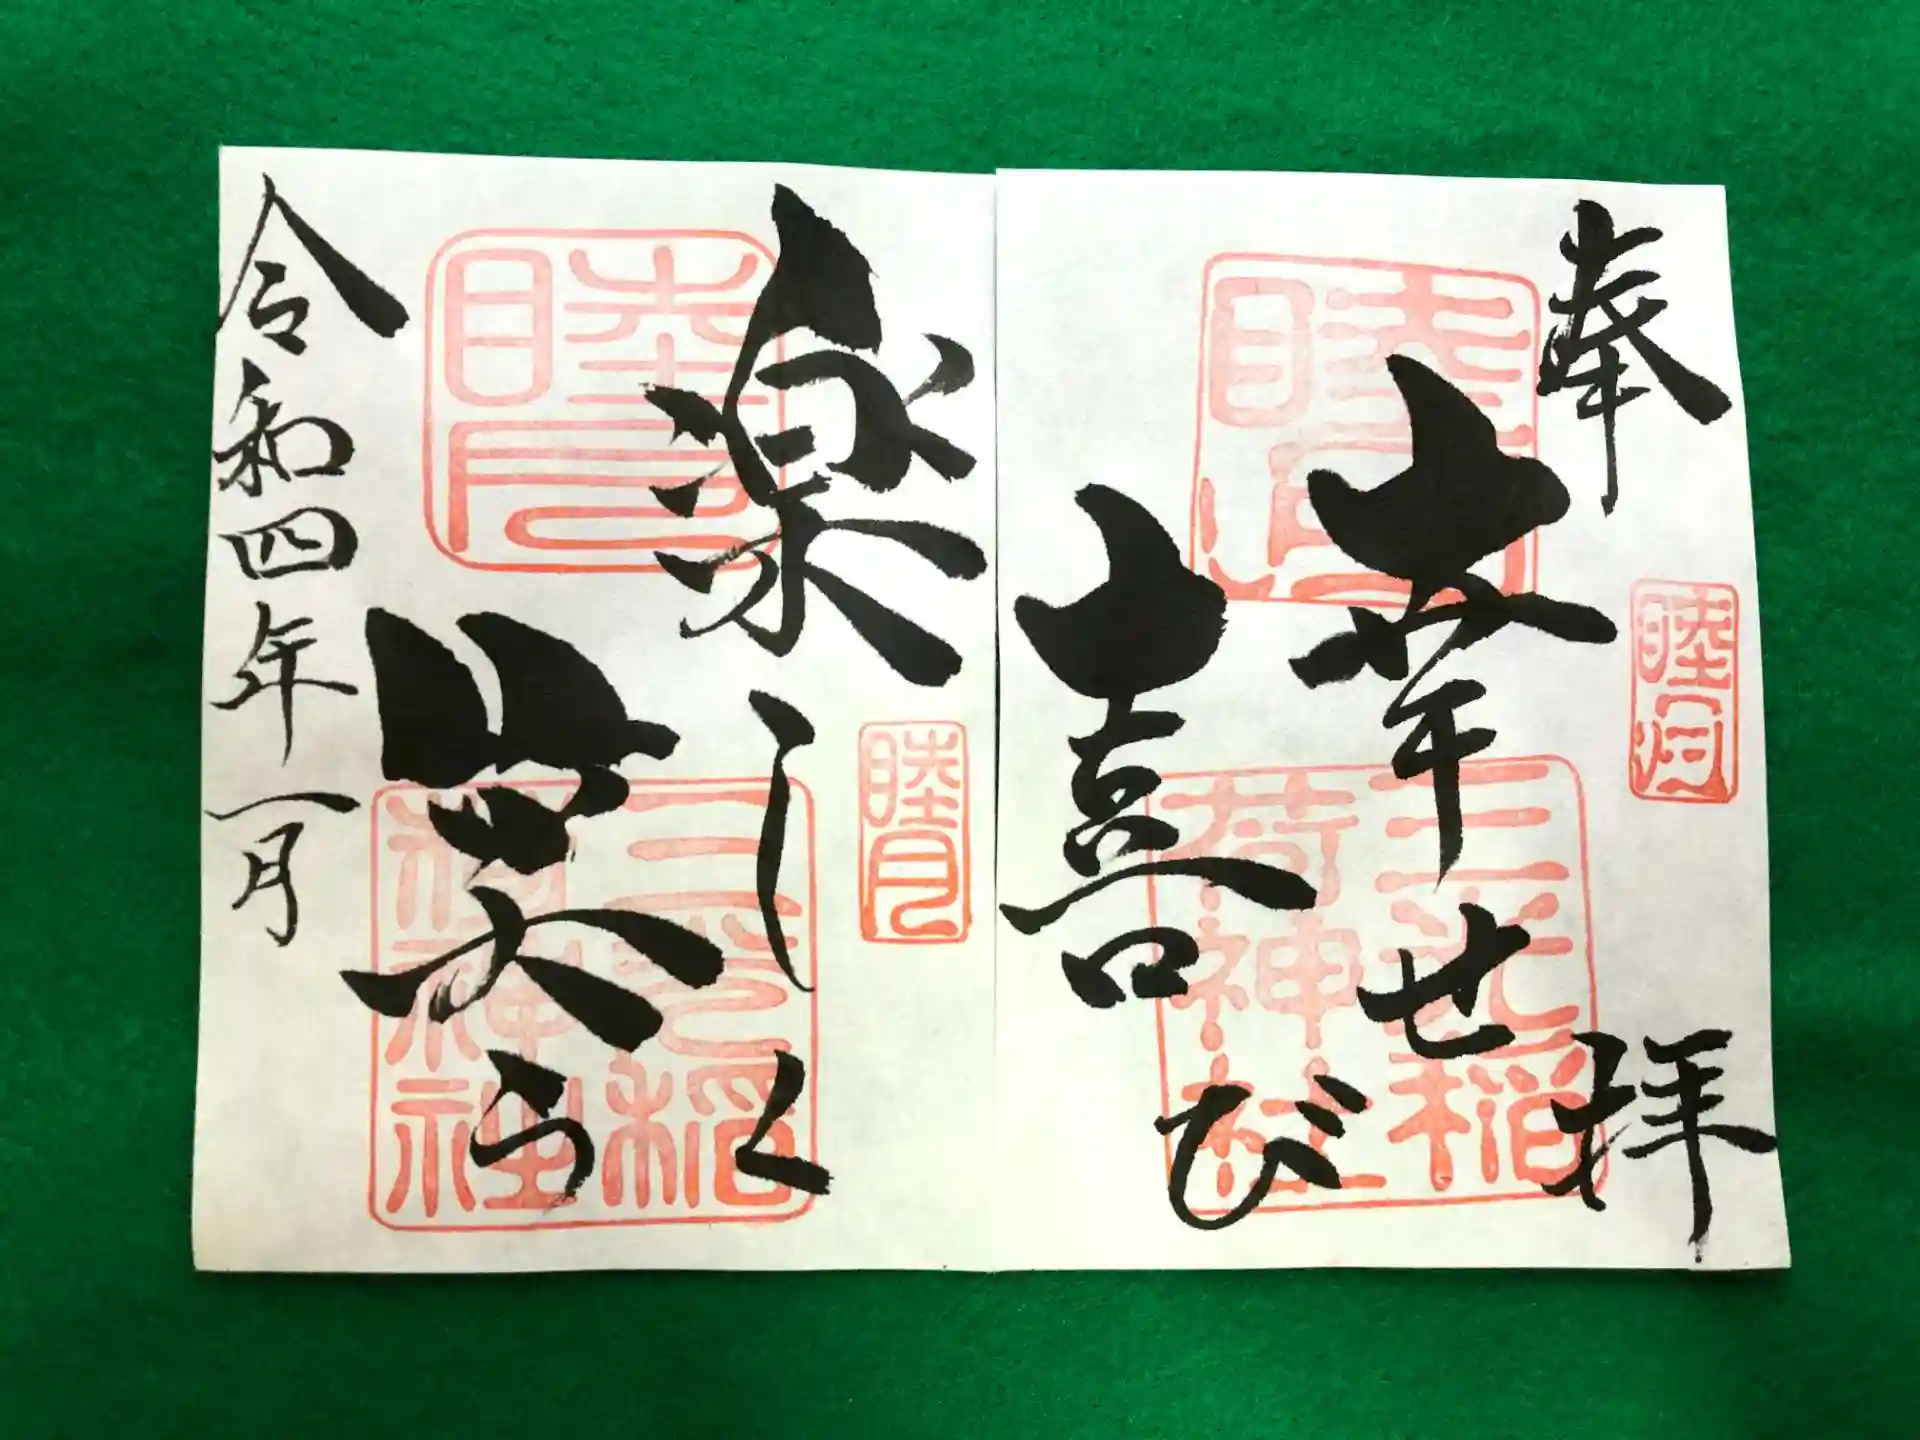 奉拝
幸せ
喜び
睦月
睦月
三光稲
荷神社
楽しく
笑う
令和四年一月
睦月
睦月
三光稲
荷神社